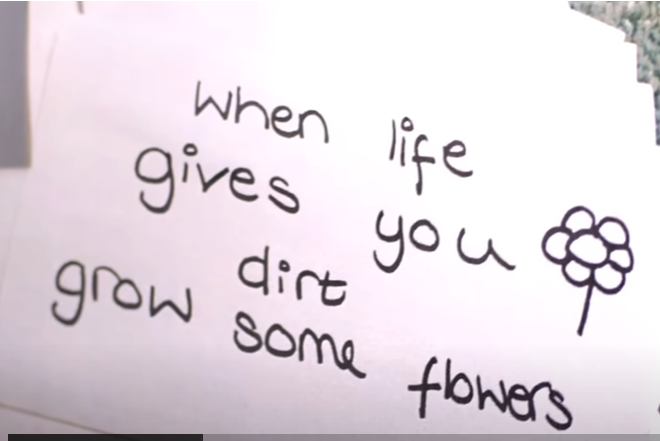 when life
gives you
dirt
grow some flowers